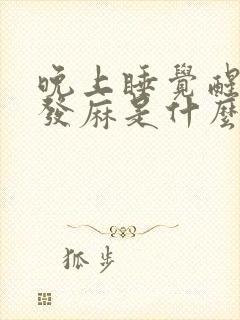 晚上睡覺醒
發麻是什麼
狐步